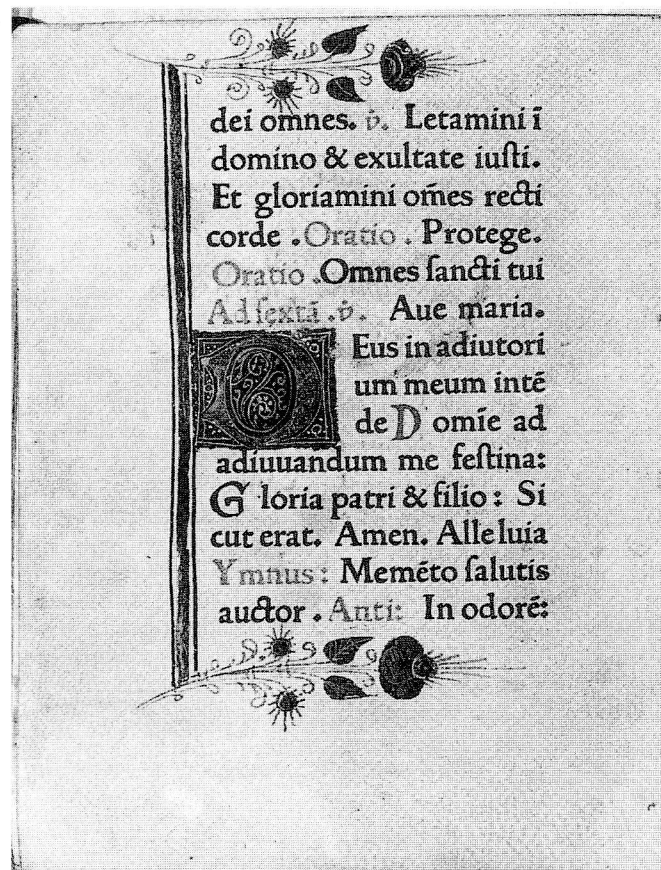 dei omnes. v̇. Letamini ī
domino & exultate iuſti.
Et gloriamini om̄es recti
corde . Oratio . Protege.
Oratio . Omnes ſancti tui
Ad ſextā . v̇. Aue maria.
DEus in adiutori
um meum intē
de Domīe ad
adiuuandum me feſtina:
Gloria patri & filio : Si
cut erat. Amen. Alleluia
Ymnus: Memēto ſalutis
auctor . Anti: In odorē: